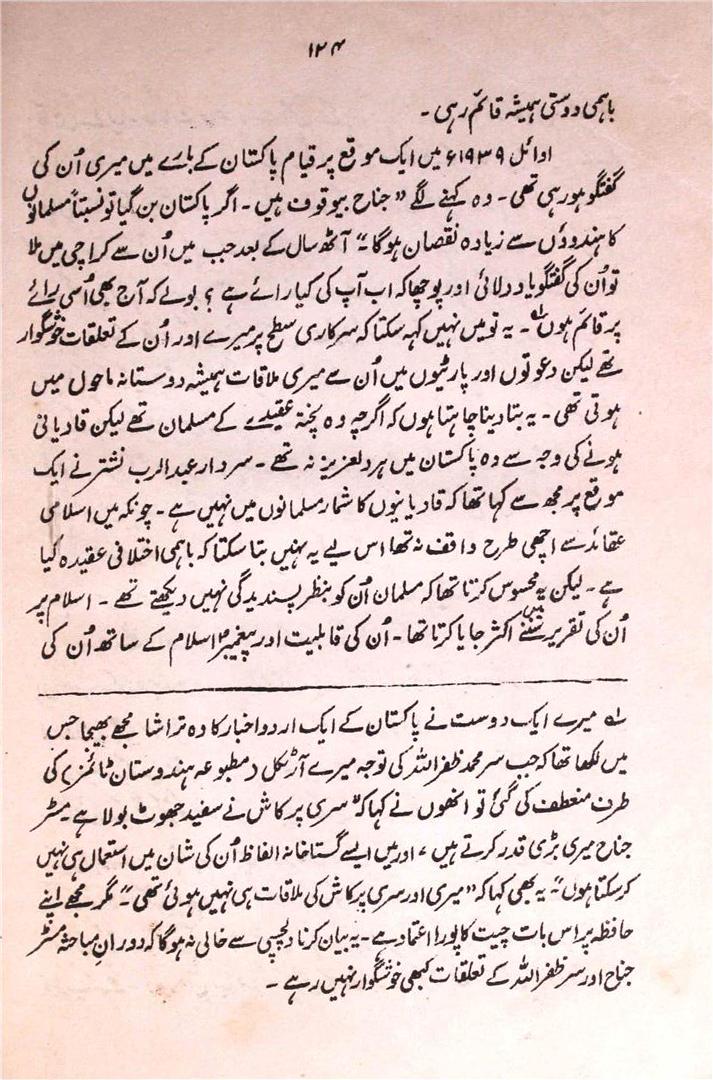 ۱۲۴
باہمی دوستی ہمیشہ قائم رہی ۔
اوائل ۱۹۳۹ء میں ایک موقع پر قیام پاکستان کے بارے میں میری اُن کی
گفتگو ہو رہی تھی ۔ وہ کہنے لگے " جناح بیوقوف ہیں ۔ اگر پاکستان بن گیا تو نسبتاً مسلمانوں
کا ہندوؤں سے زیادہ نقصان ہوگا " آٹھ سال کے بعد جب میں اُن سے کراچی میں ملا
تو اُن کی گفتگو یاد دلائی اور پوچھا کہ اب آپ کی کیا رائے ہے ؟ بولے کہ آج بھی اُسی رائے
پر قائم ہوں ۱؎ ۔ یہ تو میں نہیں کہہ سکتا کہ سرکاری سطح پر میرے اور اُن کے تعلقات خوشگوار
تھے لیکن دعوتوں اور پارٹیوں میں اُن سے میری ملاقات ہمیشہ دوستانہ ماحول میں
ہوتی تھی ۔ یہ بتا دینا چاہتا ہوں کہ اگرچہ وہ پختہ عقیدے کے مسلمان تھے لیکن قادیانی
ہونے کی وجہ سے وہ پاکستان میں ہر دلعزیز نہ تھے ۔ سردار عبدالرب نشتر نے ایک
موقع پر مجھ سے کہا تھا کہ قادیانیوں کا شمار مسلمانوں میں نہیں ہے ۔ چونکہ میں اسلامی
عقائد سے اچھی طرح واقف نہ تھا اس لیے یہ نہیں بتا سکتا کہ باہمی اختلافی عقیدہ کیا
ہے ۔ لیکن یہ محسوس کرتا تھا کہ مسلمان اُن کو بنظر پسندیدگی نہیں دیکھتے تھے ۔ اسلام پر
اُن کی تقریر سننے میں اکثر جایا کرتا تھا ۔ اُن کی قابلیت اور پیغمبرؐ اسلام کے ساتھ اُن کی
۱؎ میرے ایک دوست نے پاکستان کے ایک اردو اخبار کا وہ تراشا مجھے بھیجا جس
میں لکھا تھا کہ جب سر محمد ظفراللہ کی توجہ میرے آرٹیکل ( مطبوعہ ہندوستان ٹائمز ) کی
طرف منعطف کی گئی تو انھوں نے کہا کہ " سری پرکاش نے سفید جھوٹ بولا ہے مسٹر
جناح میری بڑی قدر کرتے ہیں ، اور میں ایسے گستاخانہ الفاظ اُن کی شان میں استعمال ہی نہیں
کر سکتا ہوں " یہ بھی کہا کہ " میری اور سری پرکاش کی ملاقات ہی نہیں ہوئی تھی " مگر مجھے اپنے
حافظہ پر اس بات چیت کا پورا اعتماد ہے ۔ یہ بیان کرنا دلچسپی سے خالی نہ ہوگا کہ دورانِ مباحثہ مسٹر
جناح اور سر ظفراللہ کے تعلقات کبھی خوشگوار نہیں رہے ۔